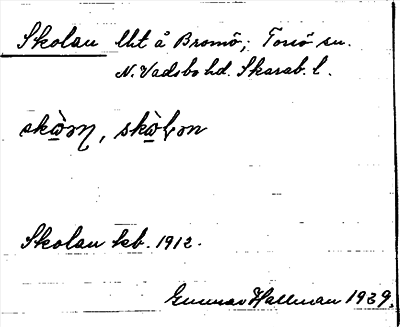 Skolan lht å Bromö; Torsö sn.
N. Vadsbo hd. Skarab. l.
Skolan kb. 1912.
Gunnar Hallman 1929.